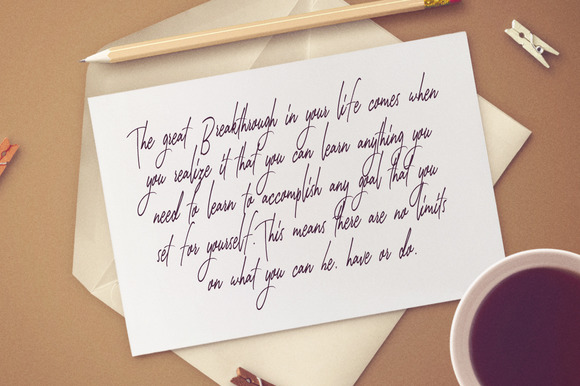 The great Breakthrough in your life comes when
you realize it that you can learn anything you
need to learn to accomplish any goal that you
set for yourself. This means there are no limits
on what you can be. have or do.